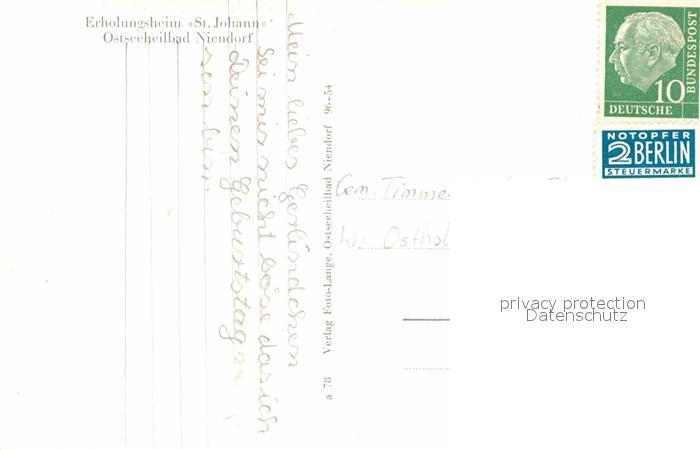 Erholungsheim »St. Johann«
Ostseeheilbad Niendorf
Mein liebes Gerlindchen
sei mir nicht böse das ich
Deinen Geburtstag
a 78 Verlag Foto-Lange, Ostseeheilbad Niendorf 96-54
10
DEUTSCHE
BUNDESPOST
NOTOPFER
2 BERLIN
STEUERMARKE
Gem. Timme
Osthol
privacy protection
Datenschutz